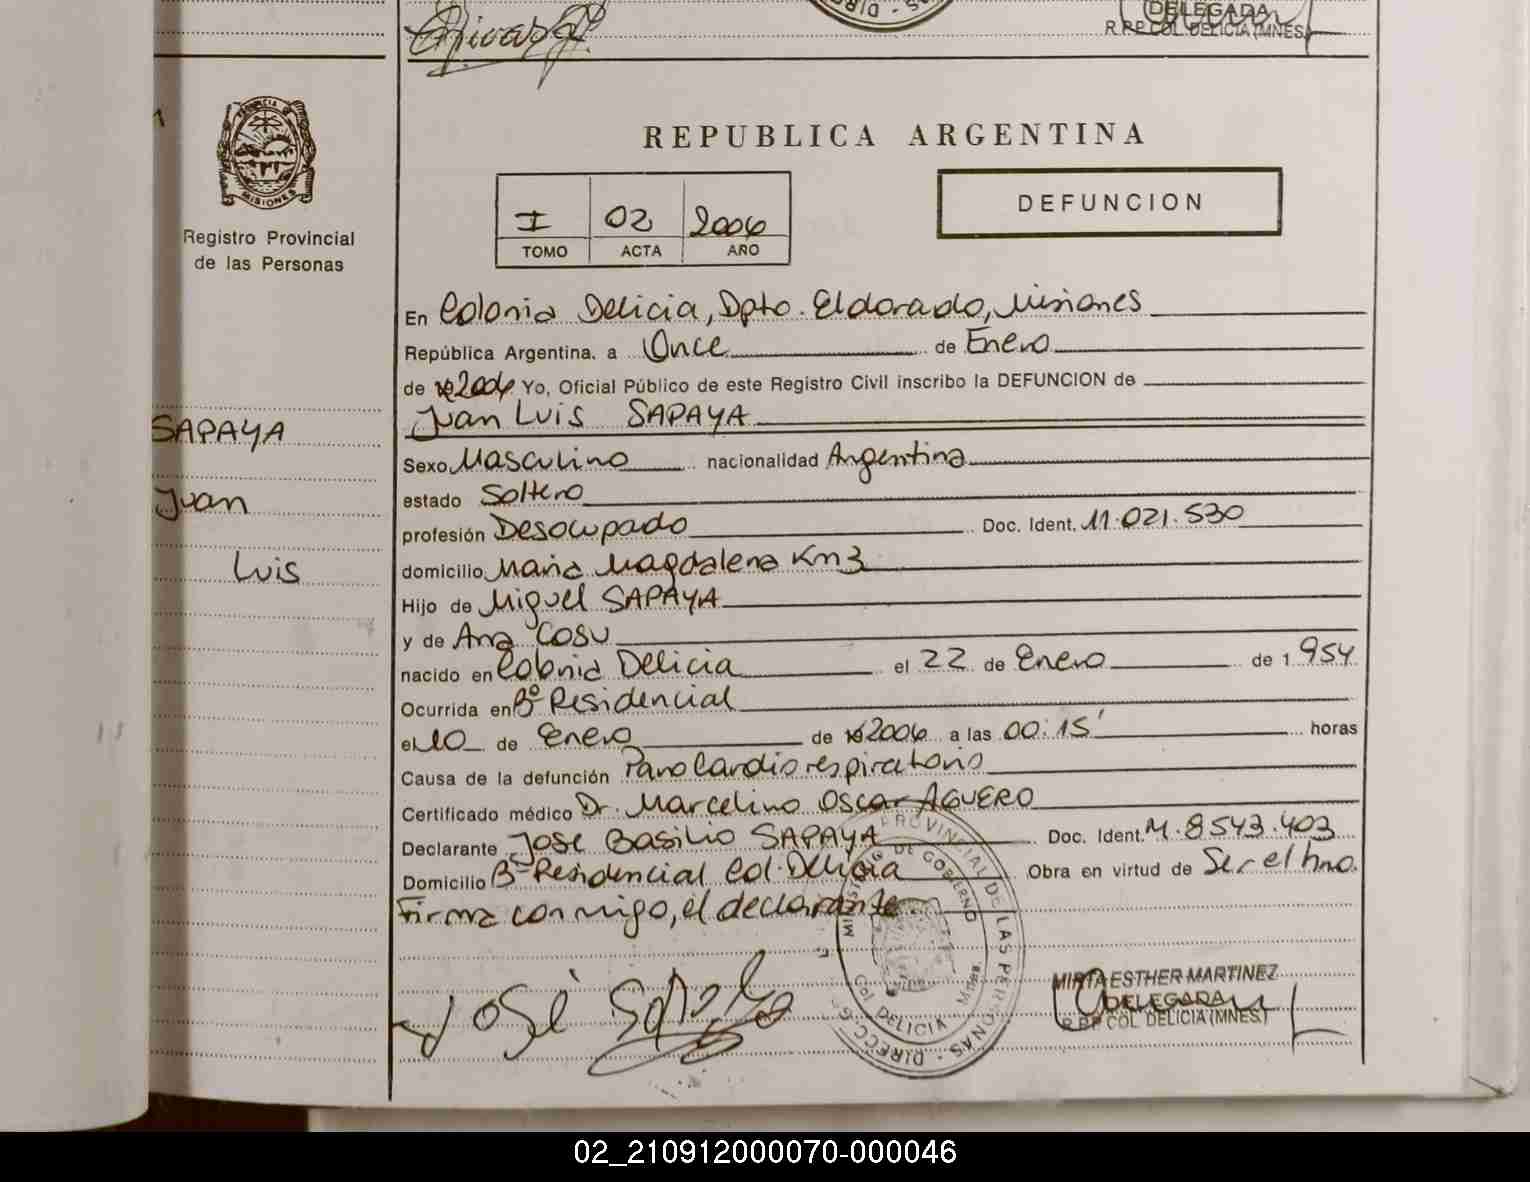 DELEGADA
R.P.P. COL. DELICIA (MNES.)
PROVINCIA DE
MISIONES
Registro Provincial
de las Personas
SAPAYA
Juan
Luis
REPUBLICA ARGENTINA
I 02 2006
TOMO ACTA AÑO
DEFUNCION
En Colonia Delicia, Dpto. Eldorado, Misiones
República Argentina, a Once de Enero
de 2006 Yo, Oficial Público de este Registro Civil inscribo la DEFUNCION de
Juan Luis SAPAYA
Sexo Masculino nacionalidad Argentina
estado Soltero
profesión Desocupado Doc. Ident. 11.021.530
domicilio Maria Magdalena Km 3
Hijo de Miguel SAPAYA
y de Ana COSU
nacido en Colonia Delicia el 22 de Enero de 1 954
Ocurrida en Bº Residencial
el 10 de Enero de 2006 a las 00:15' horas
Causa de la defunción Paro Cardiorespiratorio
Certificado médico Dr. Marcelino Oscar AGUERO
Declarante José Basilio SAPAYA Doc. Ident. M. 8543.403
Domicilio Bº Residencial Col. Delicia Obra en virtud de Ser el hno.
Firma conmigo, el declarante
José Sapaya
PROVINCIAL DE LAS PERSONAS - DIRECC. G
MINISTERIO DE GOBIERNO
Col. DELICIA Mnes.
MIRTA ESTHER MARTINEZ
DELEGADA
R.P.P. COL. DELICIA (MNES.)
02_210912000070-000046